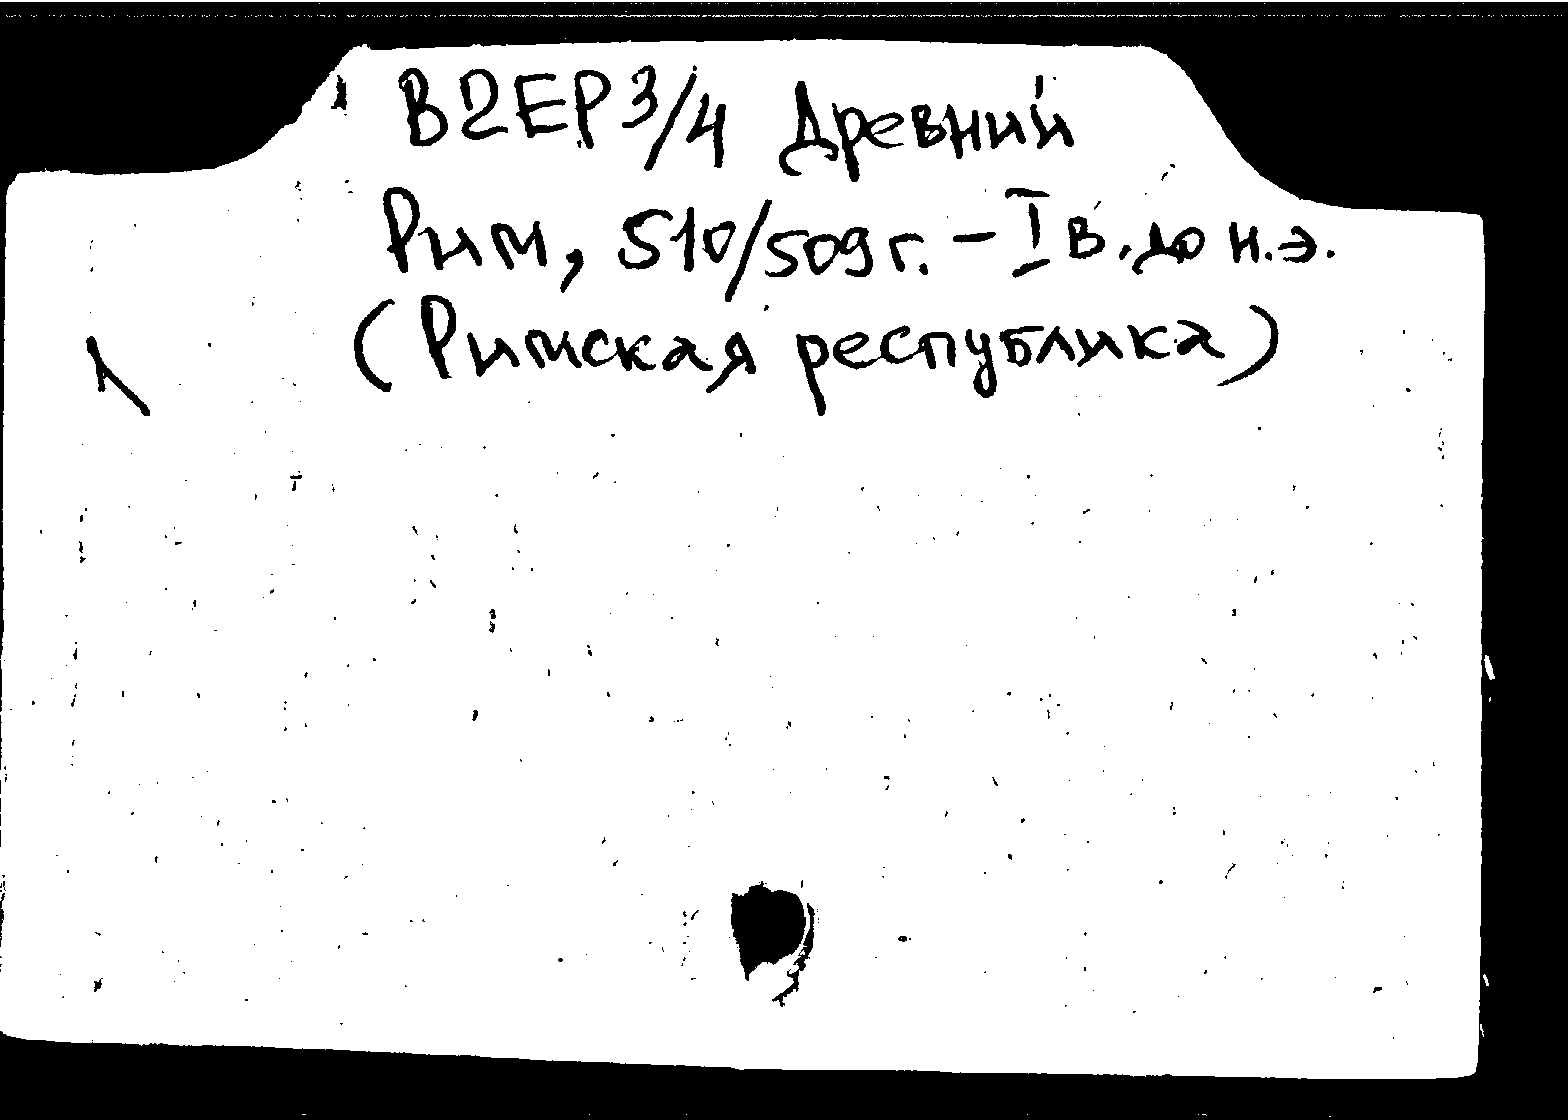 В2ЕР3/4 Древний
Рим, 510/509 г. – I в. до н.э.
(Римская республика)